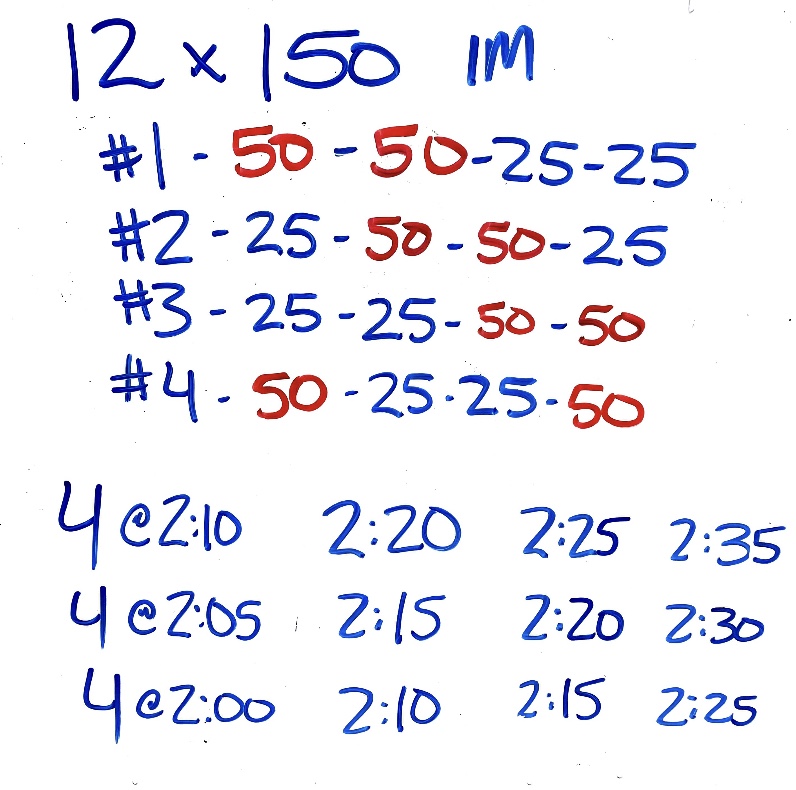 12 x 150 IM
#1 - 50 - 50 - 25 - 25
#2 - 25 - 50 - 50 - 25
#3 - 25 - 25 - 50 - 50
#4 - 50 - 25 - 25 - 50
4 @ 2:10 2:20 2:25 2:35
4 @ 2:05 2:15 2:20 2:30
4 @ 2:00 2:10 2:15 2:25